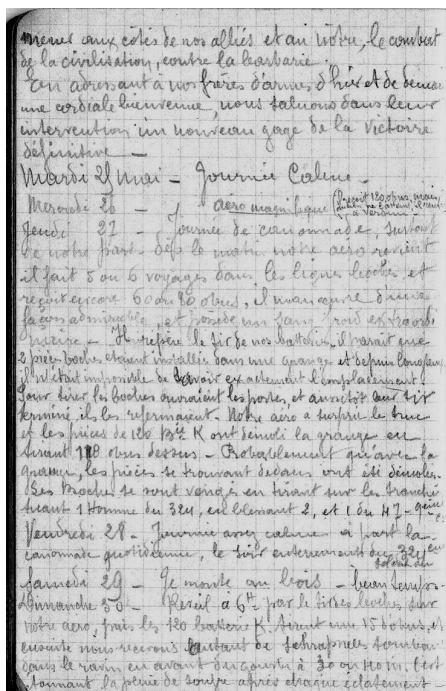 mener aux côtés de nos alliés et au nôtre, le combat
de la civilisation, contre la barbarie.
En adressant à nos frères d'armes d'hier et de demain
une cordiale bienvenue, nous saluons dans leur
intervention un nouveau gage de la victoire
définitive —
Mardi 25 Mai — Journée Calme —
Mercredi 26 — aéro magnifique Reçoit 120 obus,
à Verdun
Jeudi 27 — Journée de canonnade, surtout
de notre part. Dès le matin notre aéro revient
il fait 5 ou 6 voyages dans les lignes boches, et
reçoit encore 60 ou 80 obus, il manœuvre d'une
façon admirable, et possède un sang froid extraordi
Il repère le tir de nos batteries, il parait que
2 pièces boches étaient installées dans une grange et depuis longtemps
il n'était impossible de savoir exactement l'emplacement.
Pour tirer les boches ouvraient les portes, et aussitôt au tir
terminé ils les refermaient. Notre aéro a surpris le truc
et les pièces de 120 Bie K ont démoli la grange en
tirant 118 obus dessus — Probablement qu'avec la
grange, les pièces se trouvant dedans ont été démolies
Les Boches se sont vengés en tirant sur les tranchées
tuant 1 Homme du 324, en blessant 2, et 1 du 47
Vendredi 28 — Journée assez calme à part la
canonnade quotidienne, le soir enterrement du soldat du 324
Samedi 29 — Je monte au bois — beau temps —
Dimanche 30 — Réveil à 6h par le tir des boches sur
notre aéro, puis les 120 batterie K. tirent une 15 d'obus, et
ensuite nous recevons autant de schrapnels tombant
dans le ravin en avant du gourbi à 30 ou 40 m. C'est
étonnant la pluie de soufre après chaque éclatement